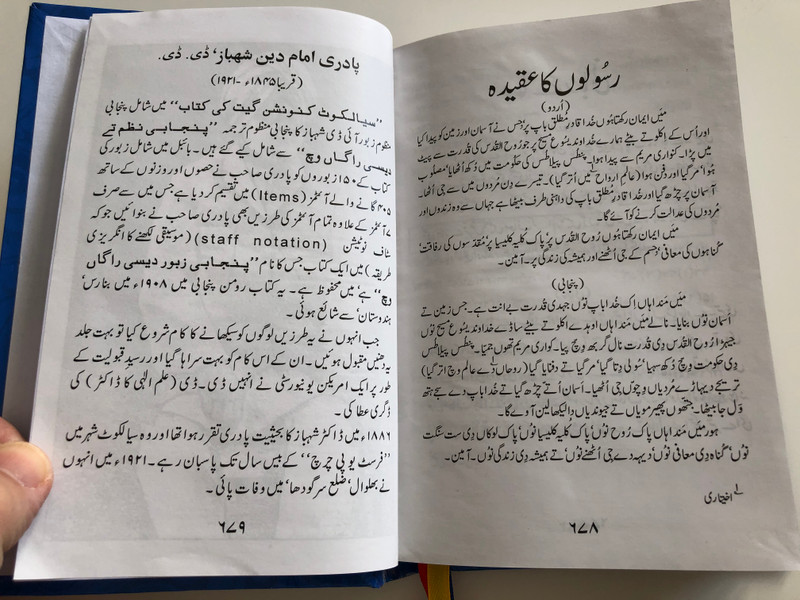 رسُولوں کا عقیدہ
(اُردو)
مَیں ایمان رکھتا ہُوں خُدا قادرِ مُطلق باپ پر؛ جس نے آسمان اور زمین کو پیدا کیا
اور اُس کے اکلوتے بیٹے ہمارے خُداوند یسُوع مسیح پر جو رُوح القدس کی قدرت سے پیٹ
میں پڑا۔ کنواری مریم سے پیدا ہوا۔ پنطُس پیلاطُس کی حکومت میں دُکھ اُٹھایا‘ مصلوب
ہُوا‘ مر گیا اور دفن ہوا (عالمِ ارواح لے میں اُتر گیا)۔ تیسرے دِن مُردوں میں سے جی اُٹھا۔
آسمان پر چڑھ گیا اور خُدا قادرِ مُطلق باپ کی داہنی طرف بیٹھا ہے جہاں سے وہ زندوں اور
مُردوں کی عدالت کرنے کو آئے گا۔
مَیں ایمان رکھتا ہُوں رُوح القدس پر‘ پاک کُلّیہ کلیسیا پر‘ مُقدّسوں کی رفاقت‘
گناہوں کی معافی‘ جسم کے جی اُٹھنے اور ہمیشہ کی زندگی پر۔ آمین۔
(پنجابی)
مَیں مَندا ہاں اِک خُدا باپ نُوں جہدی قدرت بے انت ہے۔ جس زمین تے
اَسمان نُوں بنایا۔ نالے مَیں مَندا ہاں اوہدے اکلوتے بیٹے ساڈے خداوند یسُوع مسیح نُوں
جیہڑا رُوحُ القدس دی قدرت نال گربھ وِچ پیا۔ کواری مریم تھوں جمّیا۔ پنطُس پیلاطُس
دی حکومت وِچ دُکھ سہیا‘ سُولی دِتا گیا‘ مر گیا تے دفنایا گیا (روحاں دے عالم وچ اتر گیا)
تریجے دیہاڑے مُردیاں وِچوں جی اُٹھیا۔ اَسمان اُتے چڑھ گیا تے خُدا باپ دے سجے ہتھ
وَل جا بیٹھا۔ جتھوں پھیر مویاں تے جیوندیاں دا لیکھا لین آوے گا۔
ہور مَیں مَندا ہاں پاک رُوح نُوں‘ پاک کُلیہ کلیسیا نُوں‘ پاک لوکاں دی ست سنگت
نُوں‘ گناہ دی معافی نُوں‘ دیہہ دے جی اُٹھنے نُوں تے ہمیشہ دی زندگی نُوں۔ آمین۔
لے اختیاری
۶۷۸
پادری امام دین شهباز‘ ڈی. ڈی.
(قریباً ۱۸۴۵ء -۱۹۲۱)
”سیالکوٹ کنونشن گیت کی کتاب“ میں شامل پنجابی
منظوم زبور آئی ڈی شہباز کا پنجابی منظوم ترجمہ ”پنجابی نظم تے
دیسی راگاں وچ“ سے شامل کیے گئے ہیں۔ بائبل میں شامل زبور کی
کتاب کے ۱۵۰ زبوروں کو پادری صاحب نے حصوں اور وزنوں کے ساتھ
۴۰۵ گانے والے آئٹمز (Items) میں تقسیم کر دیا ہے جس میں سے صرف
۷ آئٹمز کے علاوہ تمام آئٹمز کی طرزیں بھی پادری صاحب نے بنوائیں جو کہ
سٹاف نوٹیشن (staff notation) (موسیقی لکھنے کا انگریزی
طریقہ) میں ایک کتاب جس کا نام ”پنجابی زبور دیسی راگاں
وچ“ ہے‘ میں محفوظ ہے۔ یہ کتاب رومن پنجابی میں ۱۹۰۸ء میں بنارس‘
ہندوستان‘ سے شائع ہوئی۔
جب انہوں نے یہ طرزیں لوگوں کو سیکھانے کا کام شروع کیا تو بہت جلد
یہ دھنیں مقبول ہوئیں۔ ان کے اس کام کو بہت سراہا گیا اور رسیدِ قبولیت کے
طور پر ایک امریکن یونیورسٹی نے انہیں ڈی۔ ڈی (علم الٰہی کا ڈاکٹر) کی
ڈگری عطا کی۔
۱۸۸۶ء میں ڈاکٹر شہباز کا بحیثیت پادری تقرر ہوا تھا اور وہ سیالکوٹ شہر میں
”فرسٹ یو پی چرچ“ کے بیس سال تک پاسبان رہے۔ ۱۹۲۱ء میں انہوں
نے بھلوال‘ ضلع سرگودھا‘ میں وفات پائی۔
۶۷۹